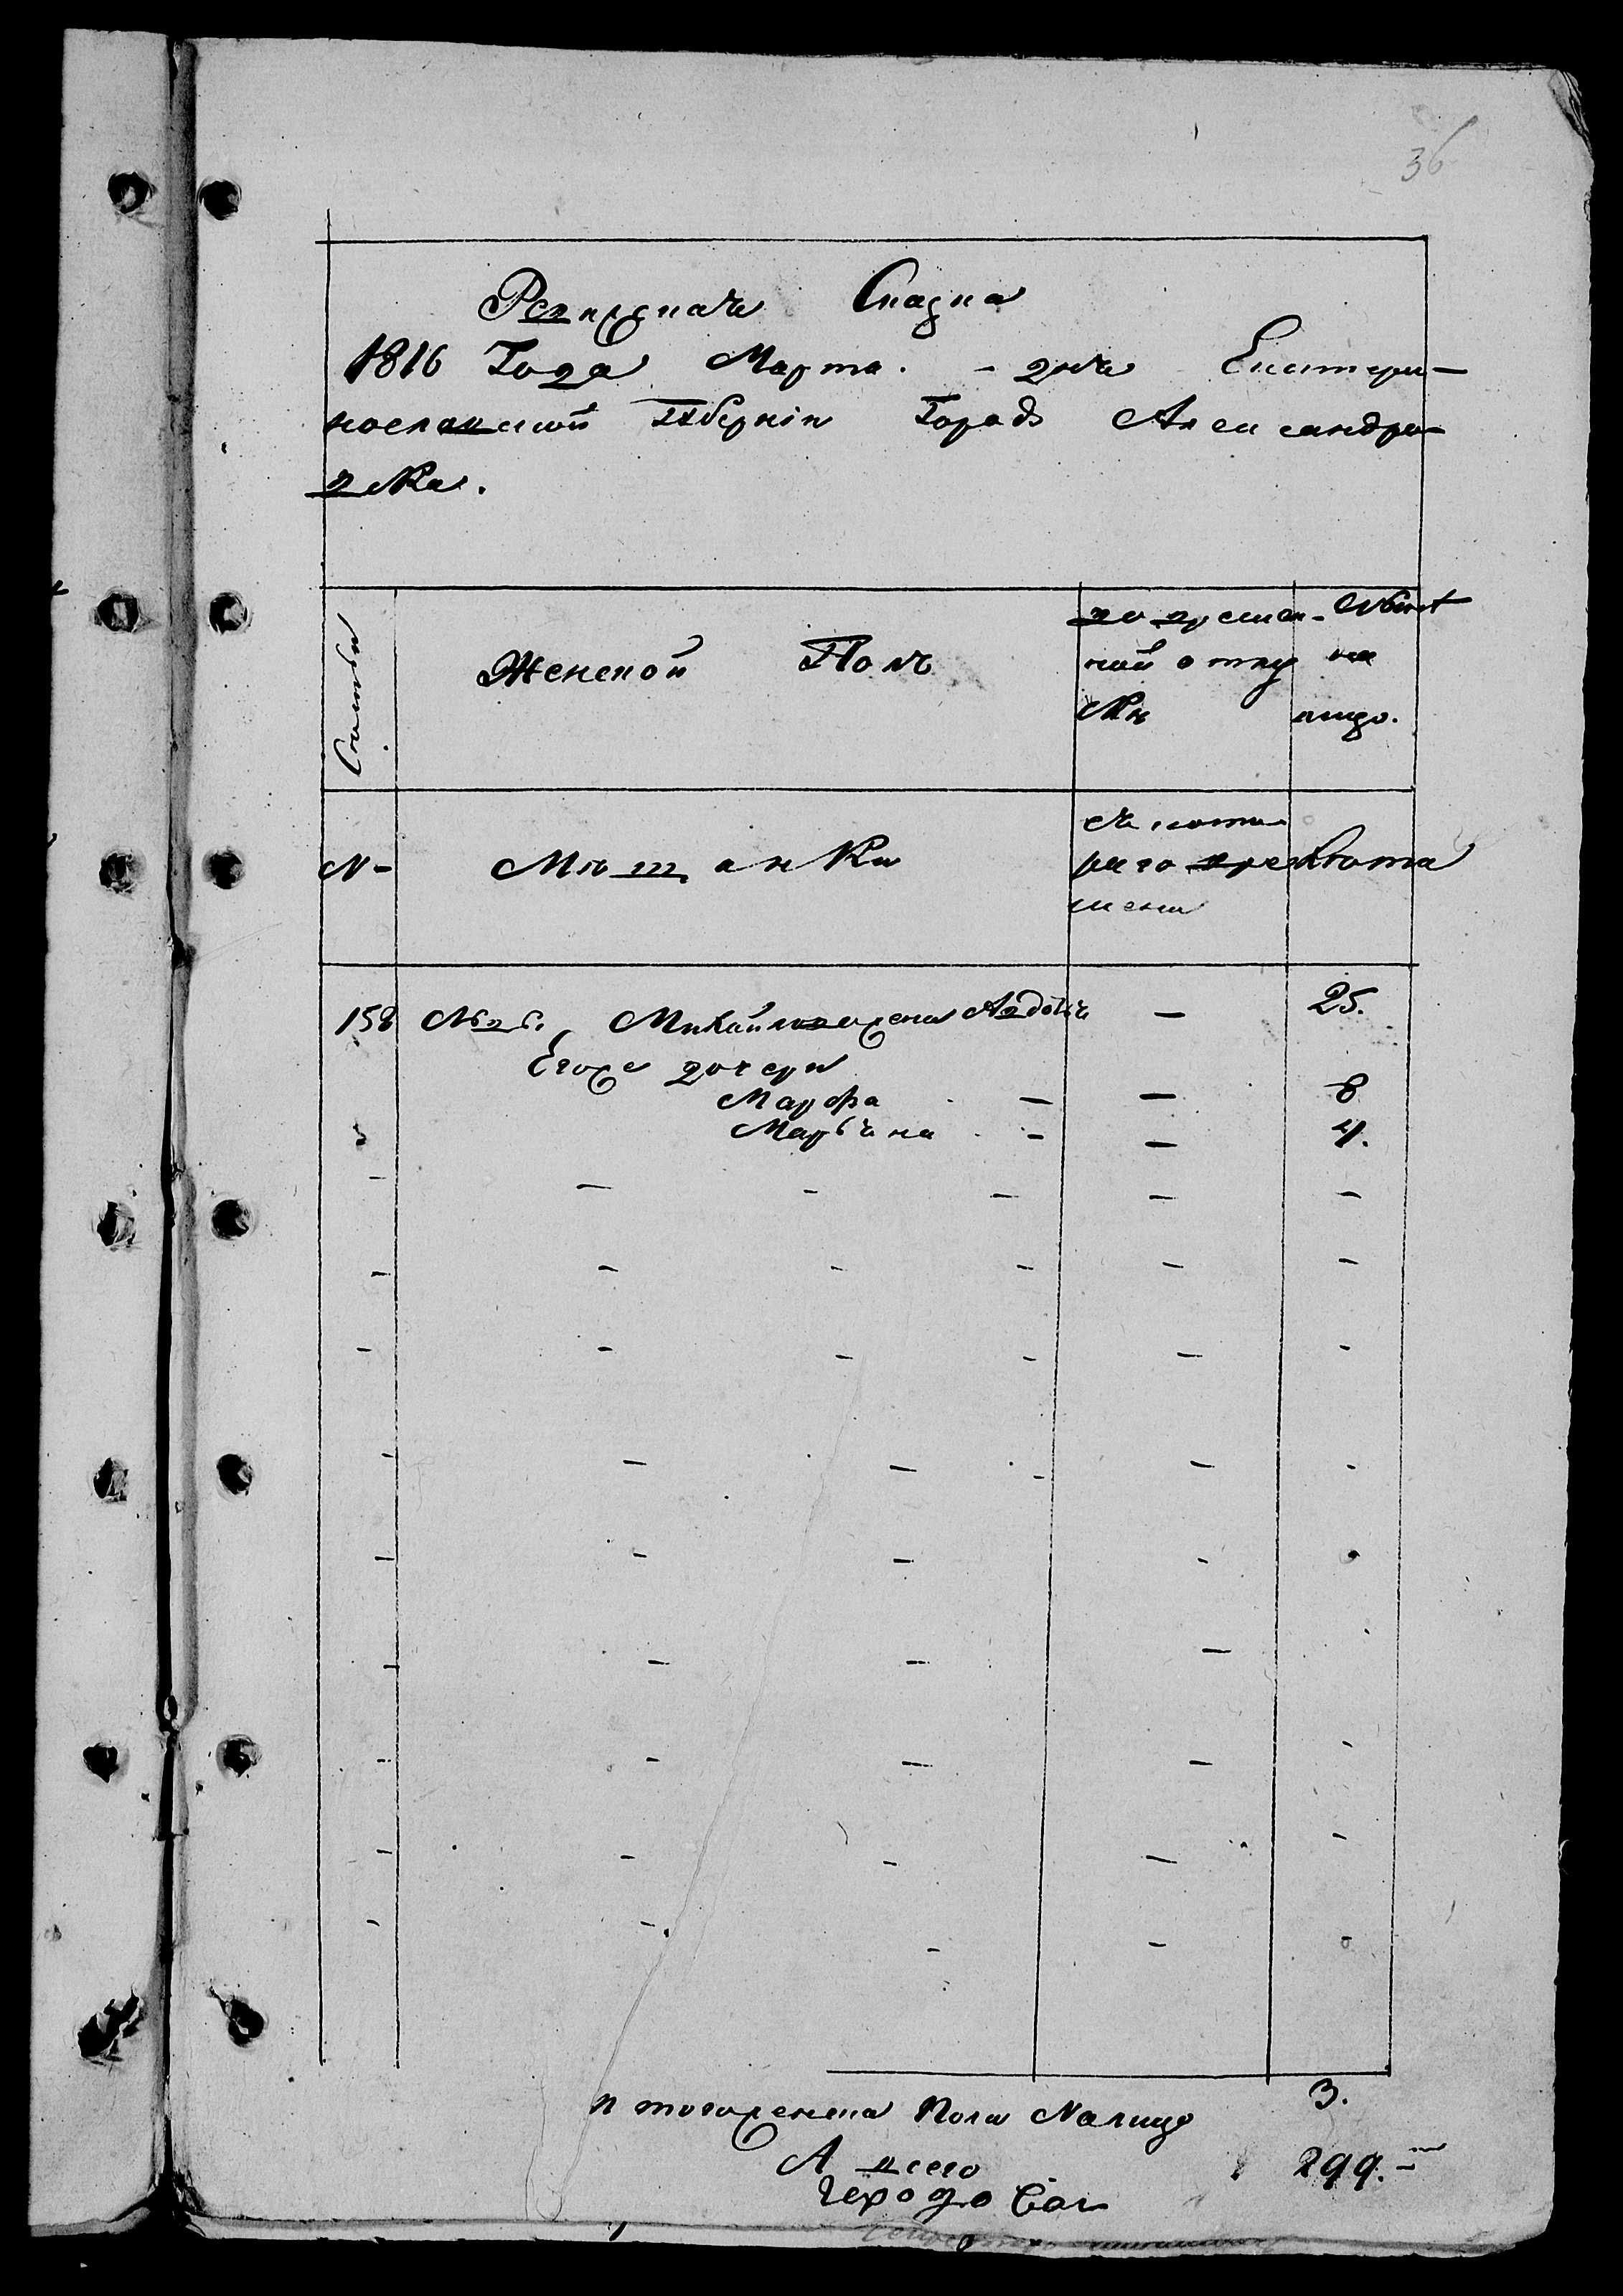 36
Ревизская Сказка
1816 Года Марта. - дня Екатери-
нославской Губерніи Города Александро-
вска.
Семьи
Женской Полъ
во времен-
ной отлу
чкѣ
Нынѣ
на
лицо.
№-
Мѣщанки
Съ кото-
раго вре
мени
Лѣта
158
Михайлова жена Авдотья — 25.
Егоже дочери
Марфа — — 8
Марьяна - — 4.
Итого женска пола Налицо 3.
А всего 299.